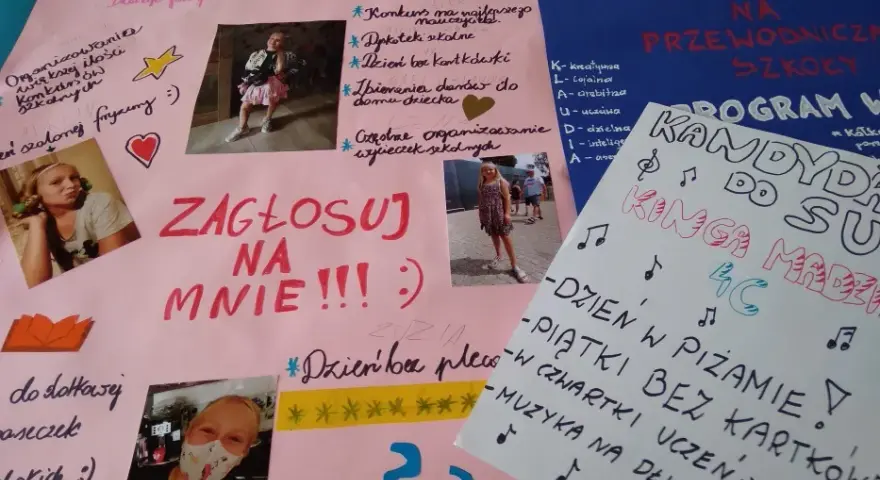 Organizowanie
większej ilości
konkursów
szkolnych
szalonej fryzury :)
* Konkurs na najlepszego
nauczyciela
* Dyskoteki szkolne
* Dzień bez kartkówki
* Zbieranie darów do
domu dziecka
* Częstsze organizowanie
wycieczek szkolnych
ZAGŁOSUJ
NA
MNIE!!! :)
* Dzień bez pleca
do stołówkowej
:)
NA
PRZEWODNICZ
SZKOŁY
K- kreatywna
L- lojalna
A- ambitna
U- uczciwa
D- dzielna
I- intelig
A-
PROGRAM W
KANDYDA
DO
SU
KINGA MADE
4C
-DZIEŃ W PIŻAMIE!
-PIĄTKI BEZ KARTKÓW
-W CZWARTKI UCZEŃ
-MUZYKA NA DŁ